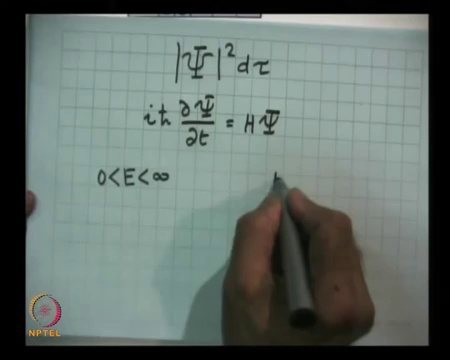 |Ψ|² dτ
iħ ∂Ψ/∂t = HΨ
0<E<∞
NPTEL